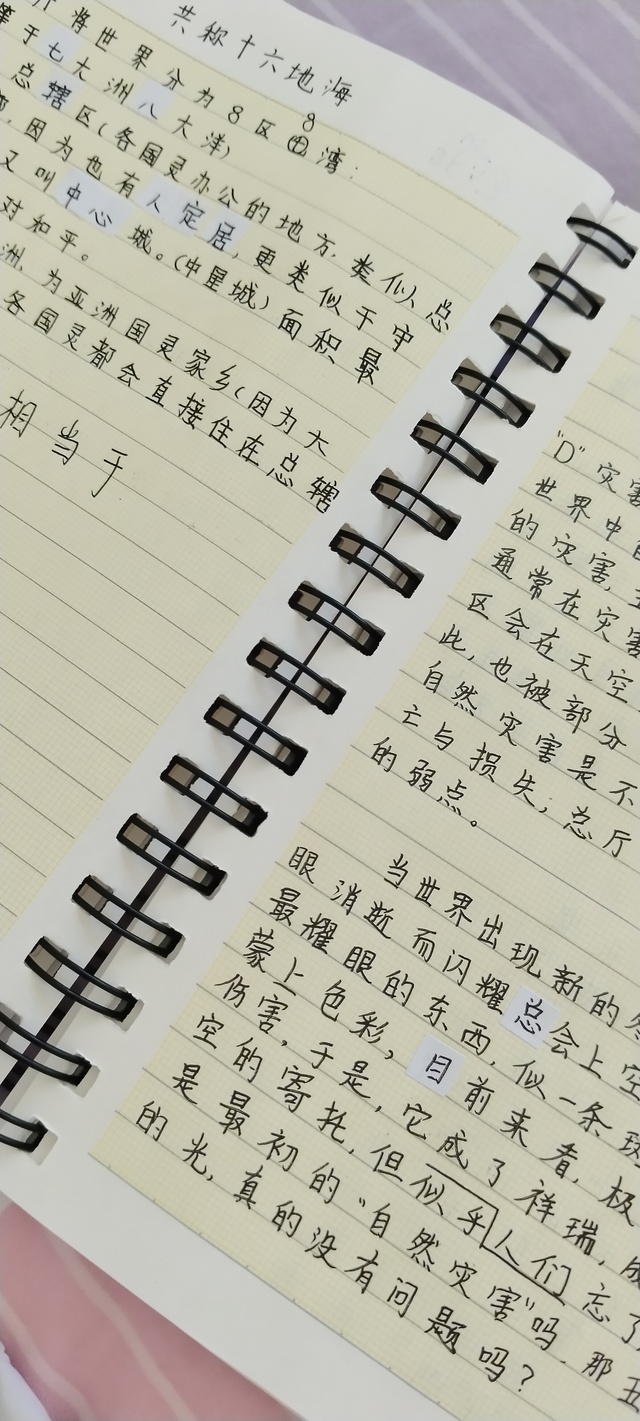 共称十六地海
将世界分为8区⊕湾:
8
等于七大洲八大洋)
总辖区(各国灵办公的地方,类似总
,因为也有人定居,更类似于中
又叫中心城。(中星城)面积最
对和平。
洲,为亚洲国灵家乡(因为大
各国灵都会直接住在总辖
相当于
"D"灾害
世界中
的灾害,
通常在灾害
区会在天空
此,也被部分
自然灾害是不
亡与损失;总厅
的弱点。
当世界出现新的
眼消逝而闪耀总会上空
最耀眼的东西,似一条
蒙上色彩,目前来看,极
伤害,于是,它成了祥瑞,
空的寄托,但似乎人们忘了
是最初的"自然灾害"吗,那
的光,真的没有问题吗?